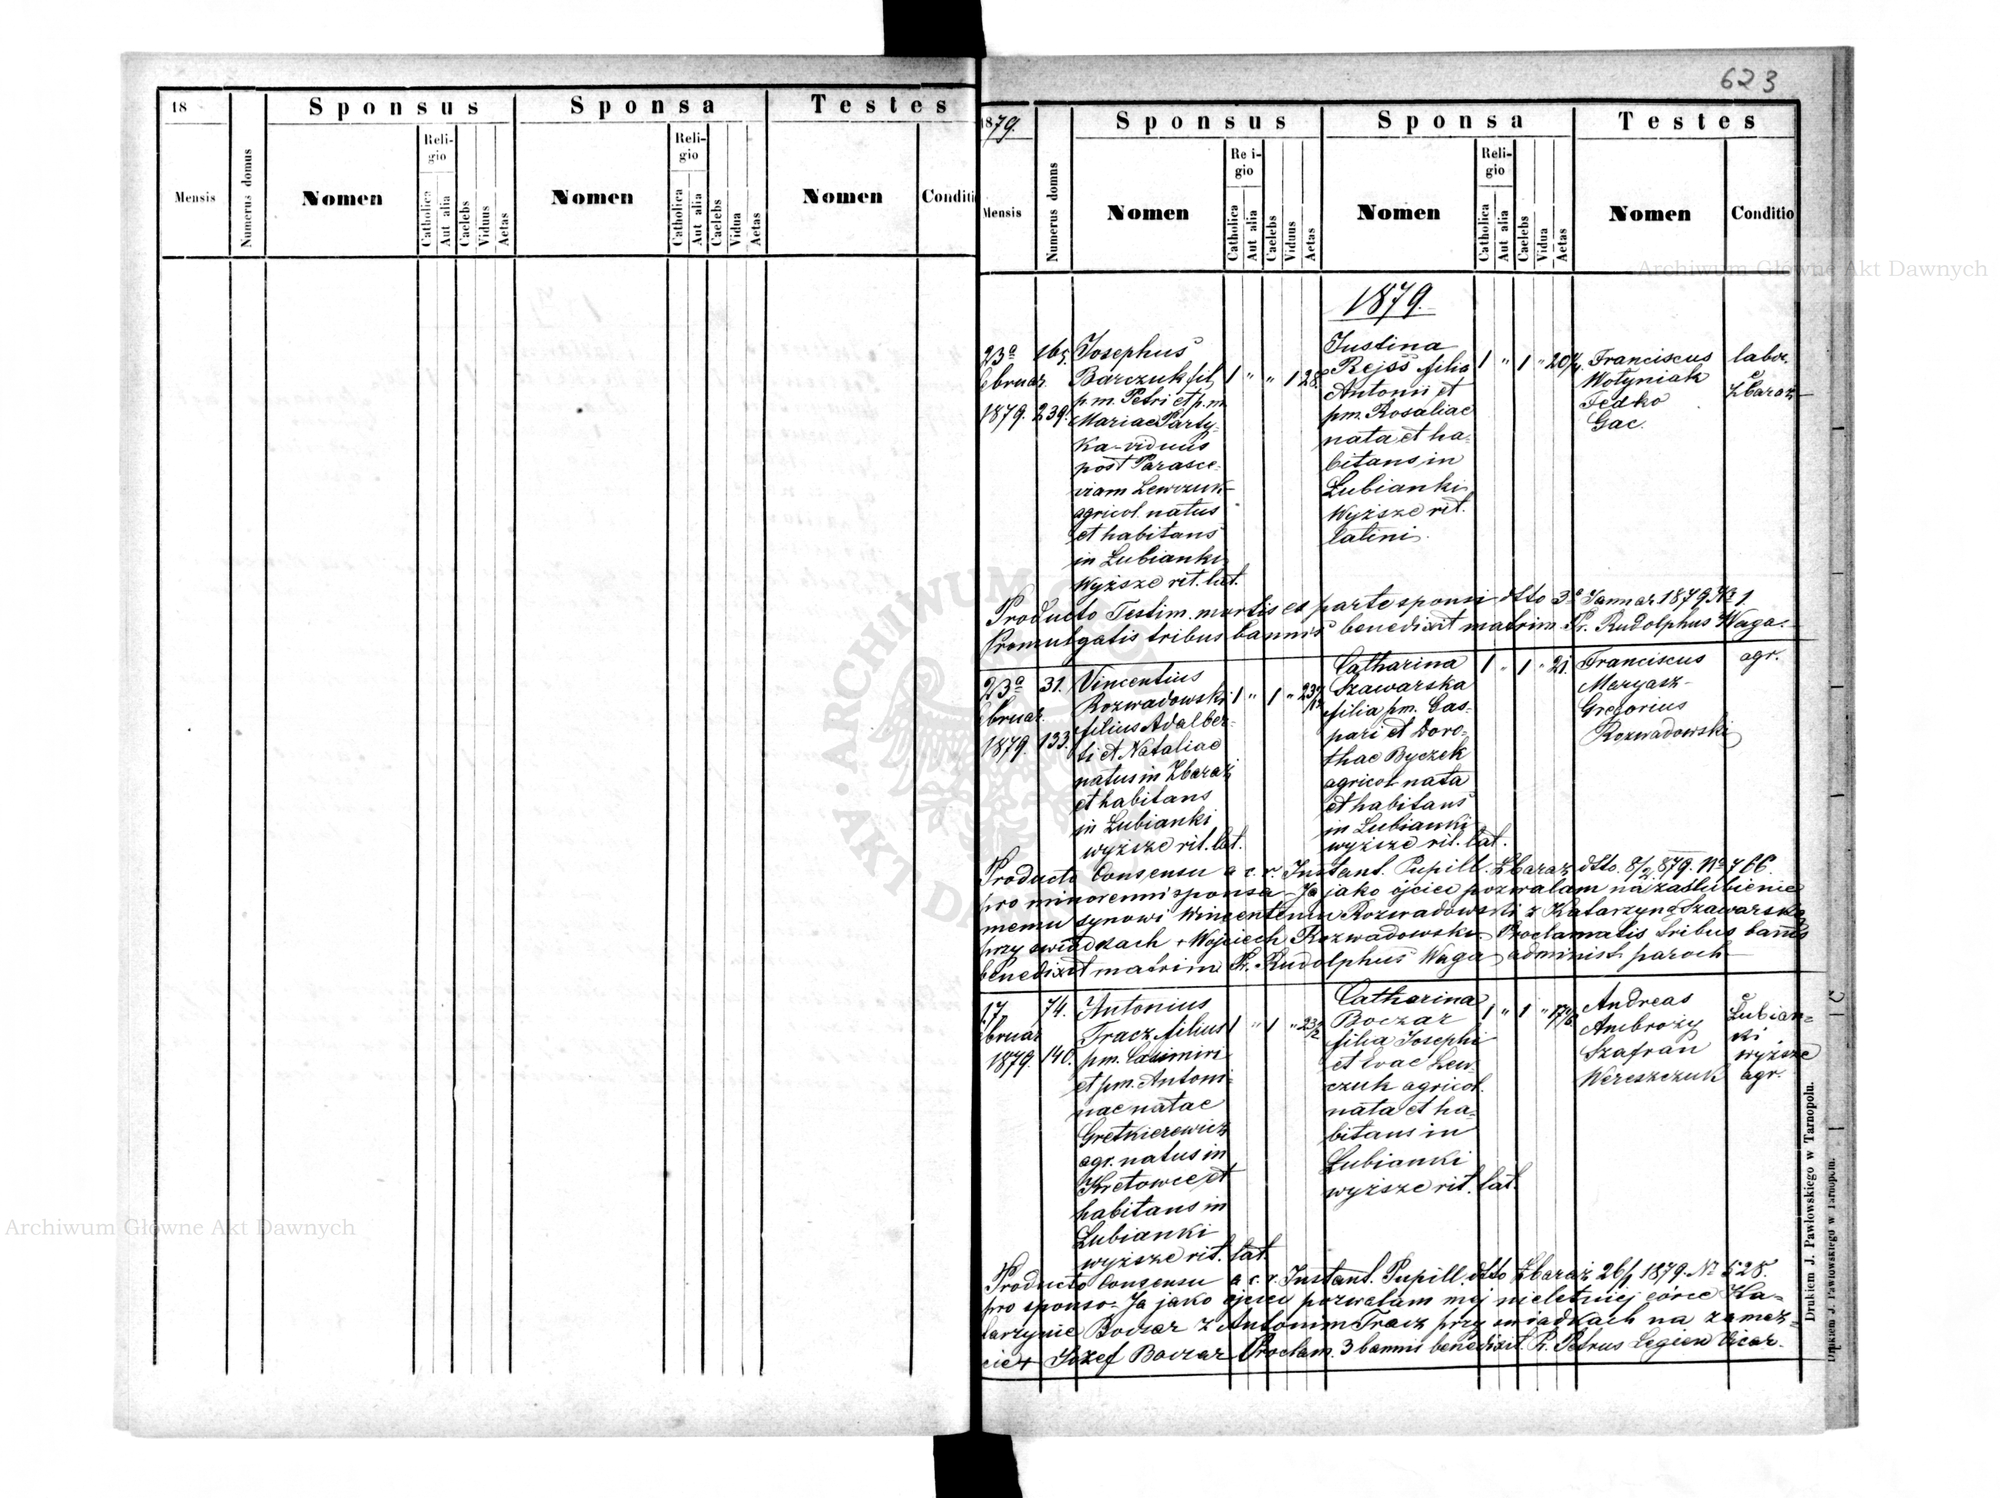 623
18
Mensis
Numerus domus
Sponsus
Nomen
Reli-
gio
Catholica
Aut alia
Caelebs
Viduus
Aetas
Sponsa
Nomen
Reli-
gio
Catholica
Aut alia
Caelebs
Vidua
Aetas
Testes
Nomen
Conditi
1879.
Mensis
Numerus domus
Sponsus
Nomen
Re i-
gio
Catholica
Aut alia
Caelebs
Viduus
Aetas
Sponsa
Nomen
Reli-
gio
Catholica
Aut alia
Caelebs
Vidua
Aetas
Testes
Nomen
Conditio
Archiwum Główne Akt Dawnych
1879.
23a
ebruar.
1879.
165
239.
Josephus
Barczuk fil.
p.m. Petri et p.m.
Mariae Party-
ka - viduus
post Parasce-
viam Lewczuk
agricol. natus
et habitans
in Lubianki
Wyższe rit. lat.
1 " " 1 28.
Justina
Rejss filia
Antonii et
pm. Rosaliae
nata et ha-
bitans in
Lubianki
Wyższe rit.
latini.
1 " 1 " 20
Franciscus
Wołyniak
Fedko
Gac.
labor.
Zbaraż
Producto Testim. mortis ex parte sponsi dtto 3a Januar. 1879. No 1.
Promulgatis tribus bannis benedixit matrim. Pr. Rudolphus Waga.
23a
ebruar.
1879.
31.
133.
Vincentius
Rozwadowski
filius Adalber-
ti et Nataliae
natus in Zbaraż
et habitans
in Lubianki
wyższe rit. lat.
1 " 1 " 23
Catharina
Szawarska
filia pm. Gas-
pari et Doro-
thae Byczek
agricol. nata
et habitans
in Lubianki
wyższe rit. lat.
1 " 1 " 21.
Franciscus
Maryasz
Gregorius
Rozwadowski
agr.
Producto Consensu a c. r. Instant. Pupill. Zbaraż dtto. 8/2 879. No 766.
pro minorenni sponsa - Ja jako ojciec pozwalam na zaślubienie
memu synowi Wincentemu Rozwadowski z Katarzyną Szawarską
przy świadkach + Wojciech Rozwadowski. Proclamatis tribus bannis
benedixit matrim. Pr. Rudolphus Waga administ. paroch.
17
bruar.
1879.
74.
140.
Antonius
Tracz filius
pm. Casimiri
et pm. Antoni-
nae natae
Gretkierewicz
agr. natus in
Kretowce et
habitans in
Lubianki
wyższe rit. lat.
1 " 1 " 23
Catharina
Boczar
filia Josephi
et Evae Lew-
czuk agricol.
nata et ha-
bitans in
Lubianki
wyższe rit. lat.
1 " 1 " 17
Andreas
Ambroży
Szafran
Wereszczuk
Lubian-
ki
wyższe
agr.
Producto Consensu a c. r. Instant. Pupill. dtto Zbaraż 26/1 1879. No 528.
pro sponso - Ja jako ojciec pozwalam mej nieletniej córce Ka-
tarzynie Boczar z Antonim Tracz przy świadkach na zamęż-
cie + Józef Boczar Proclam. 3 bannis benedixit. R. Petrus Legien Vicar.
Drukiem J. Pawłowskiego w Tarnopolu.
Drukiem J. Pawłowskiego w Tarnopolu.
ARCHIWUM GŁÓWNE AKT DAWNYCH
Archiwum Główne Akt Dawnych